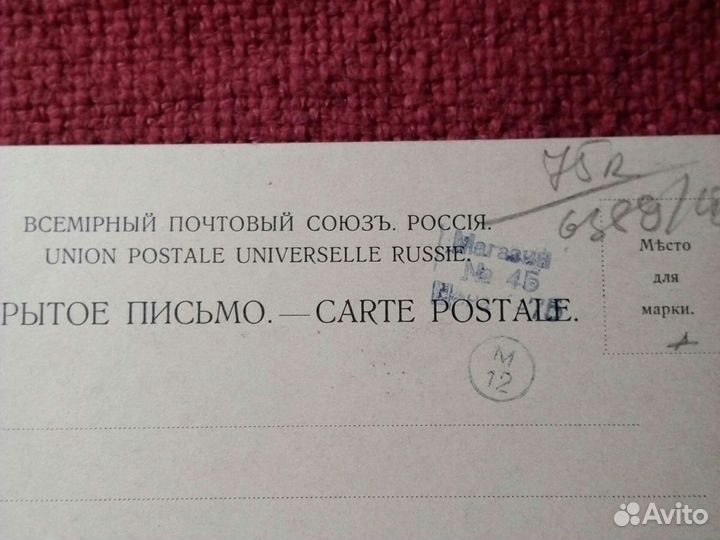 75к
6389/
ВСЕМІРНЫЙ ПОЧТОВЫЙ СОЮЗЪ. РОССІЯ.
UNION POSTALE UNIVERSELLE RUSSIE.
Магазин
№ 45
РЫТОЕ ПИСЬМО. — CARTE POSTALE.
Мѣсто
для
марки.
М
12
Avito